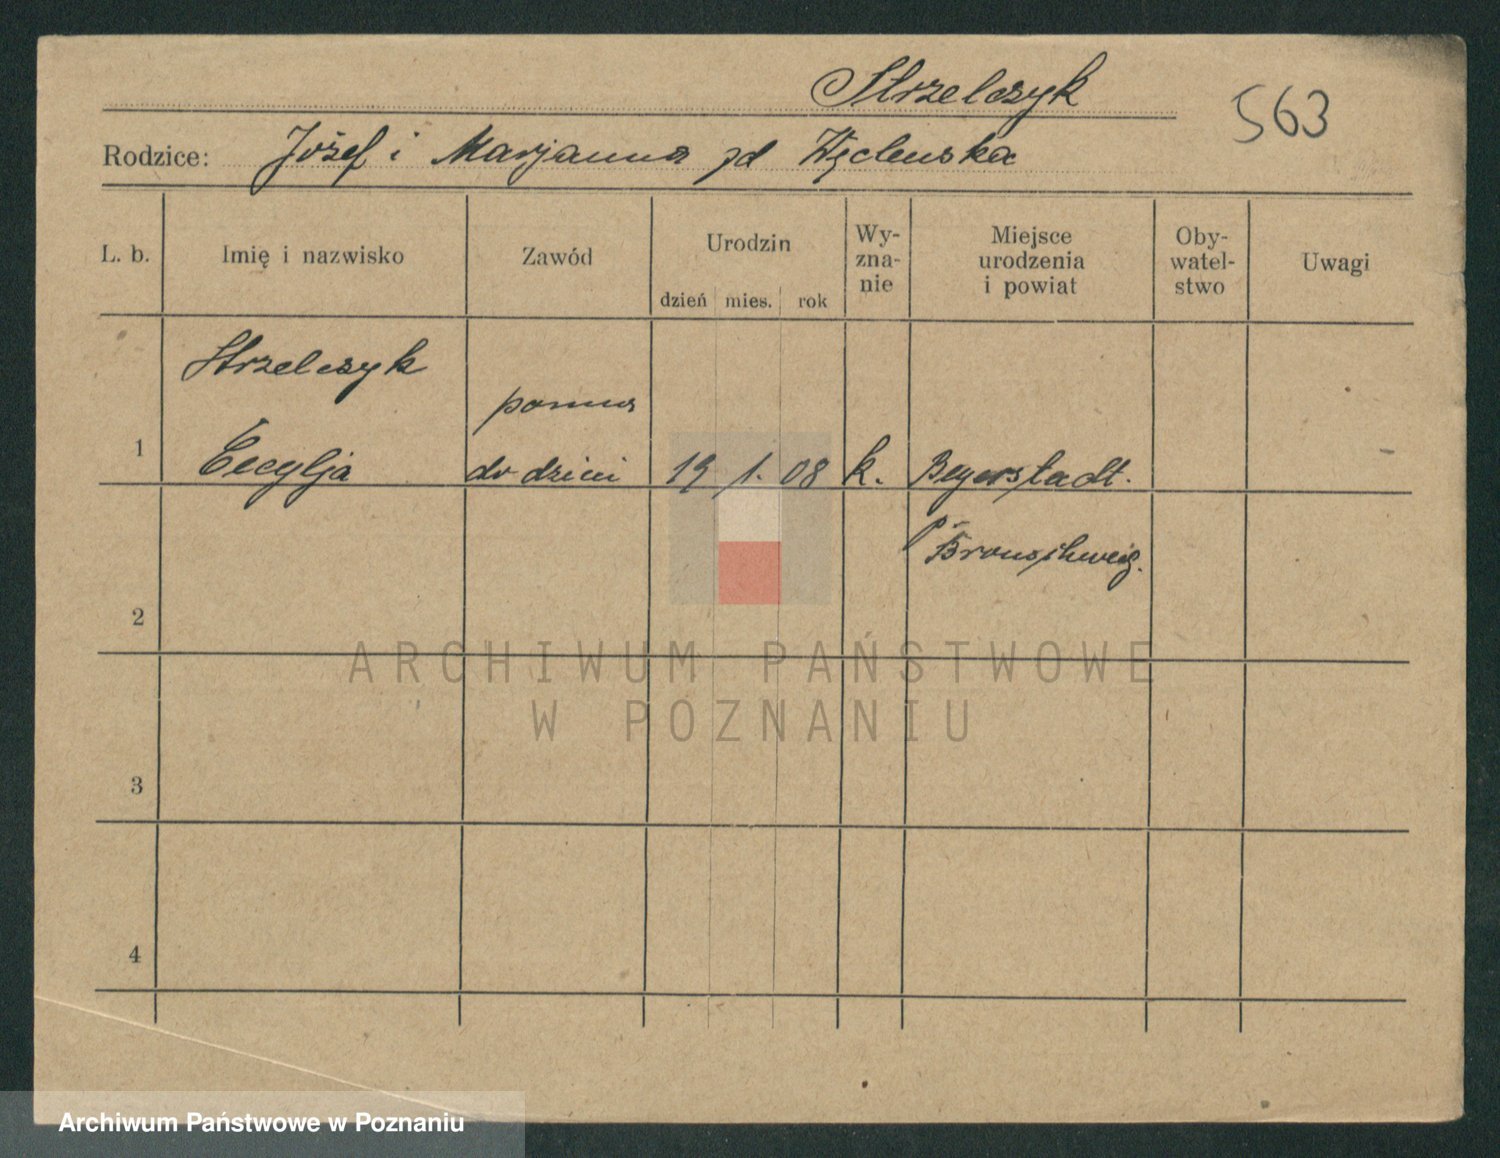 Strzelczyk
563
Rodzice: Józef i Marjanna zd
L. b. Imię i nazwisko Zawód Urodzin dzień mies. rok Wy-zna-nie Miejsce urodzenia i powiat Oby-watel-stwo Uwagi
Strzelczyk
panna
1 Cecylja do dzieci 19 1. 08 k. Beyerstadt.
p. Braunschweig.
2
ARCHIWUM PAŃSTWOWE
W POZNANIU
3
4
Archiwum Państwowe w Poznaniu